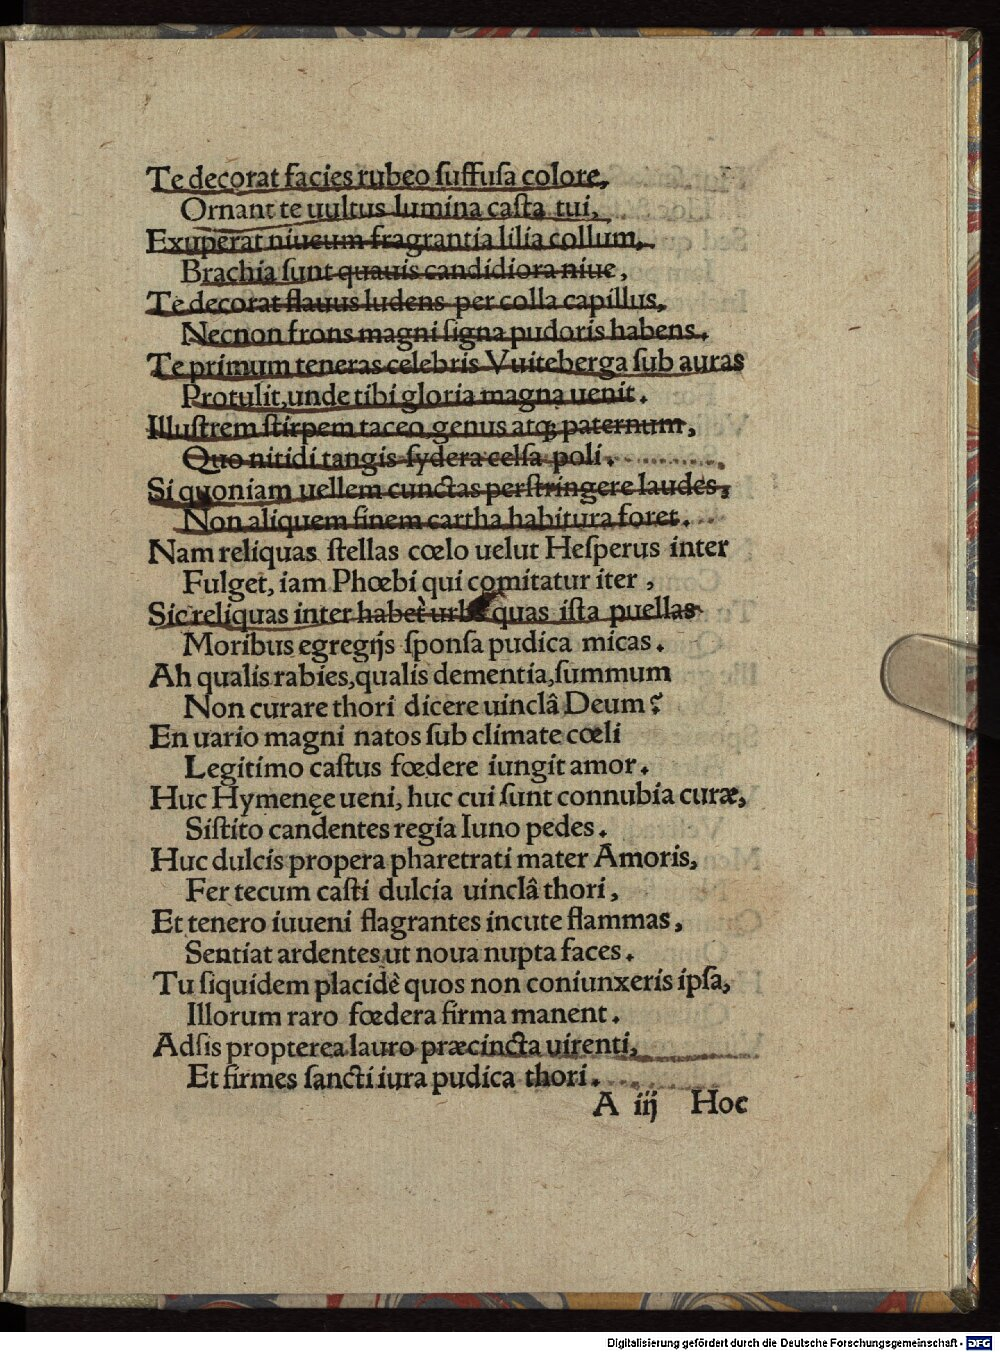 Te decorat facies rubeo ſuffuſa colore,
Ornant te uultus lumina caſta tui,
Exuperat niueum fragrantia lilia collum,
Brachia ſunt quauis candidiora niue,
Te decorat flauus ludens per colla capillus,
Necnon frons magni ſigna pudoris habens.
Te primum teneras celebris Vuiteberga ſub auras
Protulit, unde tibi gloria magna uenit.
Illuſtrem ſtirpem taceo, genus atq; paternum,
Quo nitidi tangis ſydera celſa poli.
Si quoniam uellem cunctas perſtringere laudes,
Non aliquem finem cartha habitura foret.
Nam reliquas ſtellas cœlo uelut Heſperus inter
Fulget, iam Phœbi qui comitatur iter,
Sic reliquas inter habet urbs quas iſta puellas
Moribus egregijs ſponſa pudica micas.
Ah qualis rabies, qualis dementia, ſummum
Non curare thori dicere uinclâ Deum?
En uario magni natos ſub climate cœli
Legitimo caſtus fœdere iungit amor.
Huc Hymenęe ueni, huc cui ſunt connubia curæ,
Siſtito candentes regia Iuno pedes.
Huc dulcis propera pharetrati mater Amoris,
Fer tecum caſti dulcia uinclâ thori,
Et tenero iuueni flagrantes incute flammas,
Sentiat ardentes ut noua nupta faces.
Tu ſiquidem placidè quos non coniunxeris ipſa,
Illorum raro fœdera firma manent.
Adſis propterea lauro præcincta uirenti,
Et firmes ſancti iura pudica thori.
A iij Hoc
Digitalisierung gefördert durch die Deutsche Forschungsgemeinschaft - DFG